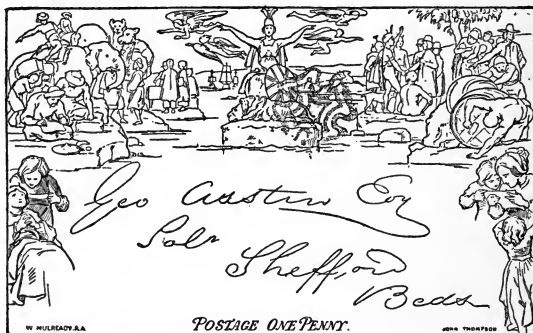 Geo Austin Esq
Solr
Shefford
Beds
W MULREADY.R.A
POSTAGE ONE PENNY.
JOHN THOMPSON